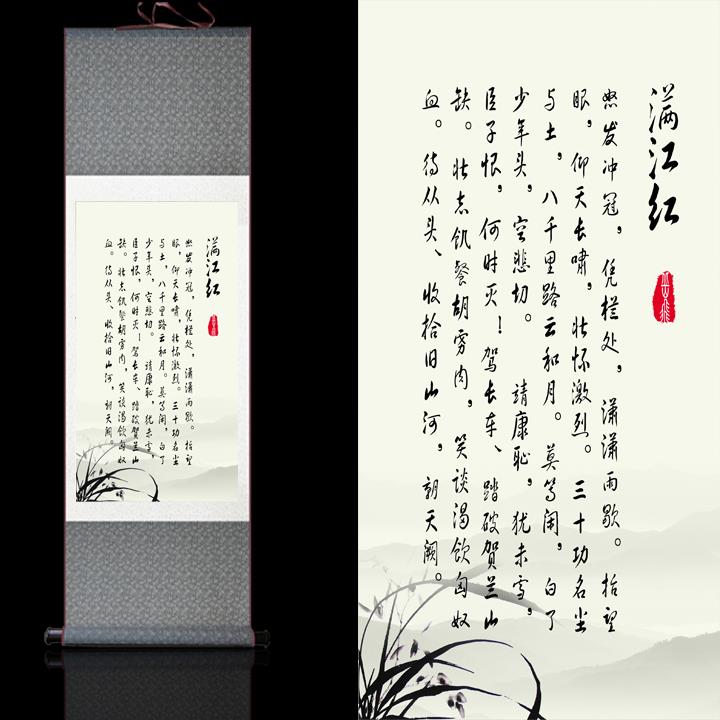 满江红
岳飞
怒发冲冠，凭栏处，潇潇雨歇。抬望
眼，仰天长啸，壮怀激烈。三十功名尘
与土，八千里路云和月。莫等闲，白了
少年头，空悲切。　請康恥，犹未雪，
臣子恨，何时灭！驾长车、踏破贺兰山
缺。壮志饥餐胡虏肉，笑谈渴饮匈奴
血。待从头、收拾旧山河，朝天阙。
满江红
岳飞
怒发冲冠，凭栏处，潇潇雨歇。抬望
眼，仰天长啸，壮怀激烈。三十功名尘
与土，八千里路云和月。莫等闲，白了
少年头，空悲切。　請康恥，犹未雪，
臣子恨，何时灭！驾长车、踏破贺兰山
缺。壮志饥餐胡虏肉，笑谈渴饮匈奴
血。待从头、收拾旧山河，朝天阙。